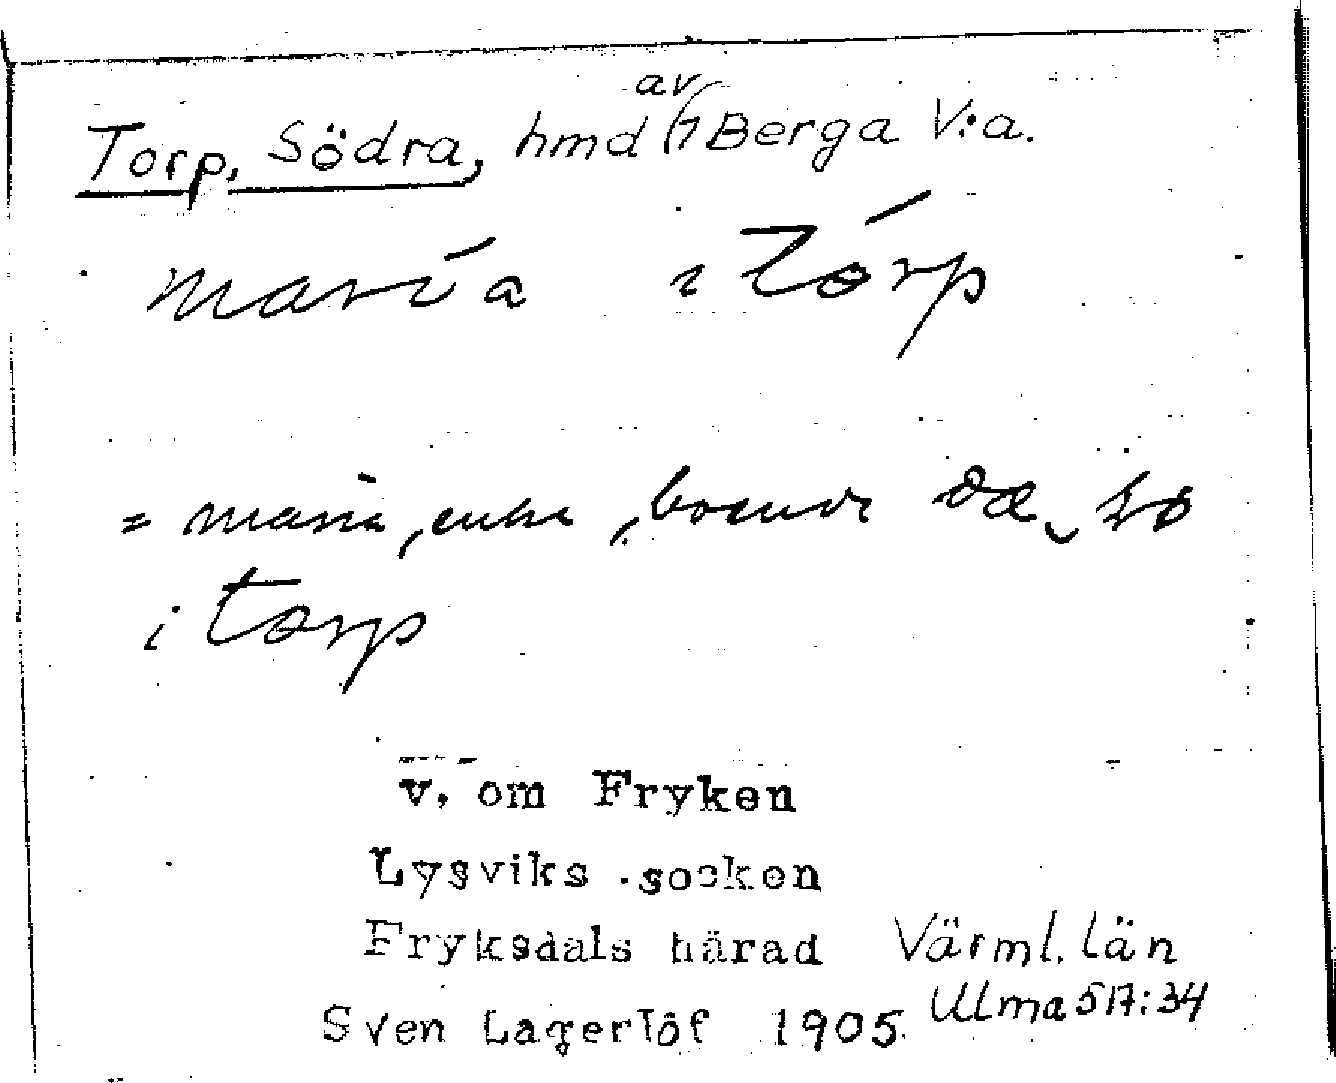 Torp, Södra, hmd av 1 Berga V:a.
maría i Tórp
= maria, enka, boende
i torp
v. om Fryken
Lysviks socken
Fryksdals härad Värml. län
Sven Lagerlöf 1905. Ulma 517:34